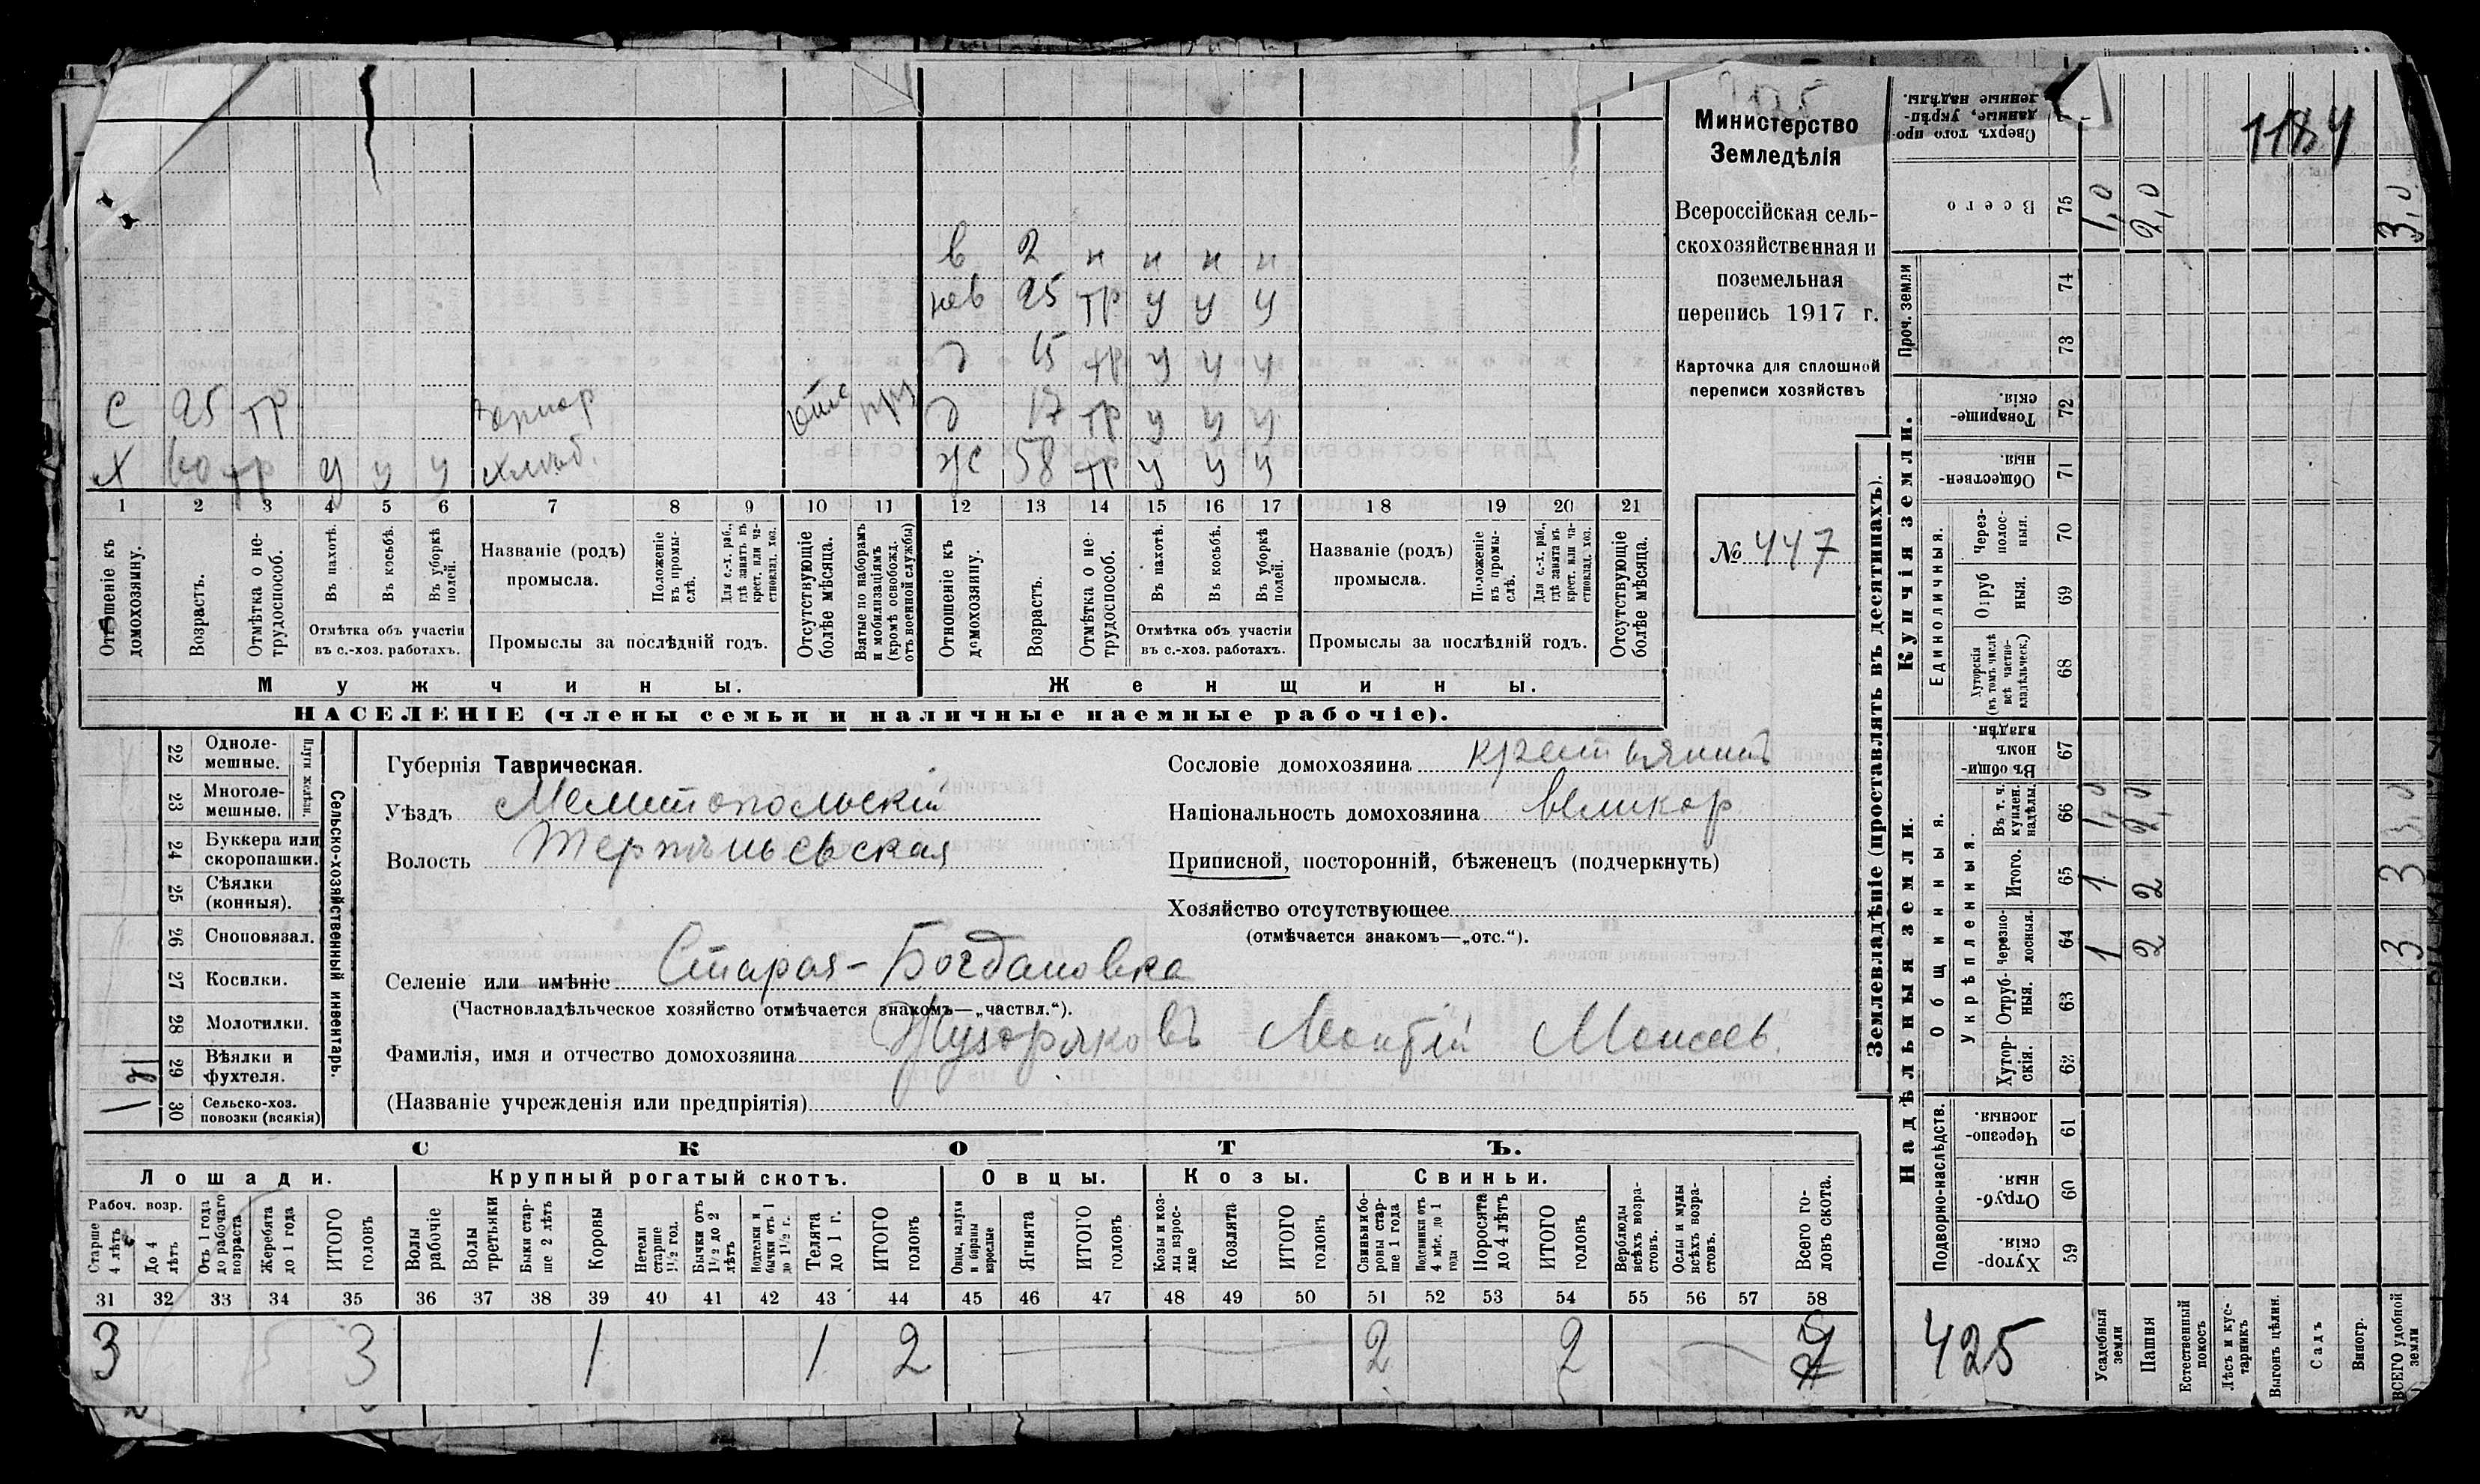 1184
Министерство
Земледѣлія
Всероссійская сель-
скохозяйственная и
поземельная
перепись 1917 г.
Карточка для сплошной
переписи хозяйствъ
№ 447
в 2 н н н н
нев 25 тр у у у
д 15 тр у у у
с 25 тр отс д 17 тр у у у
х 60 тр у у у хлѣб. ж 58 тр у у у
1 2 3 4 5 6 7 8 9 10 11 12 13 14 15 16 17 18 19 20 21
Отношеніе къ домохозяину.
Возрастъ.
Отмѣтка о не-трудоспособ.
Въ пахотѣ.
Въ косьбѣ.
Въ уборкѣ полей.
Отмѣтка объ участіи
въ с.-хоз. работахъ.
Названіе (родъ)
промысла.
Положеніе въ промы-слѣ.
Для с.-х. раб., гдѣ занятъ въ крест. или ча-стновлад. хоз.
Промыслы за послѣдній годъ.
Отсутствующіе болѣе мѣсяца.
Взятые по наборамъ и мобилизаціямъ (кромѣ освобожд. отъ военной службы)
Отношеніе къ домохозяину.
Возрастъ.
Отмѣтка о не-трудоспособ.
Въ пахотѣ.
Въ косьбѣ.
Въ уборкѣ полей.
Отмѣтка объ участіи
въ с.-хоз. работахъ.
Названіе (родъ)
промысла.
Положеніе въ промы-слѣ.
Для с.-х. раб., гдѣ занята въ крест. или ча-стновлад. хоз.
Промыслы за послѣдній годъ.
Отсутствующіе болѣе мѣсяца.
Мужчины. Женщины.
НАСЕЛЕНІЕ (члены семьи и наличные наемные рабочіе).
22 Одноле-мешные.
23 Многоле-мешные.
Плуги желѣзн.
24 Буккера или скоропашки.
25 Сѣялки (конныя).
26 Сноповязал.
27 Косилки.
28 Молотилки.
29 Вѣялки и фухтеля.
30 Сельско-хоз. повозки (всякія) 1
Сельско-хозяйственный инвентарь.
Губернія Таврическая.
Уѣздъ Мелитопольскій
Волость Терпѣньевская
Сословіе домохозяина крестьянинъ
Національность домохозяина великор.
Приписной, посторонній, бѣженецъ (подчеркнуть)
Хозяйство отсутствующее
(отмѣчается знакомъ—„отс.“).
Селеніе или имѣніе Старая-Богдановка
(Частновладѣльческое хозяйство отмѣчается знакомъ—„частвл.“).
Фамилія, имя и отчество домохозяина Моисеев.
(Названіе учрежденія или предпріятія)
СКОТЪ.
Лошади. Крупный рогатый скотъ. Овцы. Козы. Свиньи.
Рабоч. возр.
Старше 4 лѣтъ
До 4 лѣтъ
Отъ 1 года до рабочаго возраста
Жеребята до 1 года
ИТОГО головъ
Волы рабочіе
Волы третьяки
Быки стар-ше 2 лѣтъ
Коровы
Нетели старше 1½ год.
Бычки отъ 1½ до 2 лѣтъ
Нетелки и бычки отъ 1 до 1½ г.
Телята до 1 г.
ИТОГО головъ
Овцы, валухи и бараны взрослые
Ягнята
ИТОГО головъ
Козы и коз-лы взрос-лые
Козлята
ИТОГО головъ
Свиньи и бо-ровы стар-ше 1 года
Подсвинки отъ 4 мѣс. до 1 года
Поросята до 4 лѣтъ
ИТОГО головъ
Верблюды всѣхъ возра-стовъ.
Ослы и мулы всѣхъ возра-стовъ.
Всего го-ловъ скота.
31 32 33 34 35 36 37 38 39 40 41 42 43 44 45 46 47 48 49 50 51 52 53 54 55 56 57 58
3 3 1 1 2 2 2 7
Землевладѣніе (проставлять въ десятинахъ).
Сверхъ того про-данные, укрѣп-ленные надѣлы.
Всего 75 1,0 2,0 3,0
Проч. земли 74 73
Купчія земли.
Товарище-скія. 72
Обществен-ныя. 71
Единоличныя.
Через-полос-ныя. 70
Отруб ныя. 69
Хуторскія (въ томъ числѣ всѣ частно-владѣльческ.) 68
Надѣльныя земли.
Общинныя.
Въ общи-номъ владѣн. 67
Укрѣпленныя.
Въ т. ч. куплен. надѣлы. 66 1,0 2,0 3,0
Итого. 65 1 2 3
Черезпо-лосныя. 64 1 2 3
Отруб-ныя. 63
Хутор-скія. 62
Подворно-наслѣдств.
Черезпо-лосныя. 61
Отруб-ныя. 60
Хутор-скія. 59
425
Усадебныя земли
Пашня
Естественный покосъ
Лѣсъ и кус-тарникъ
Выгонъ цѣлин.
Садъ
Виногр.
ВСЕГО удобной земли